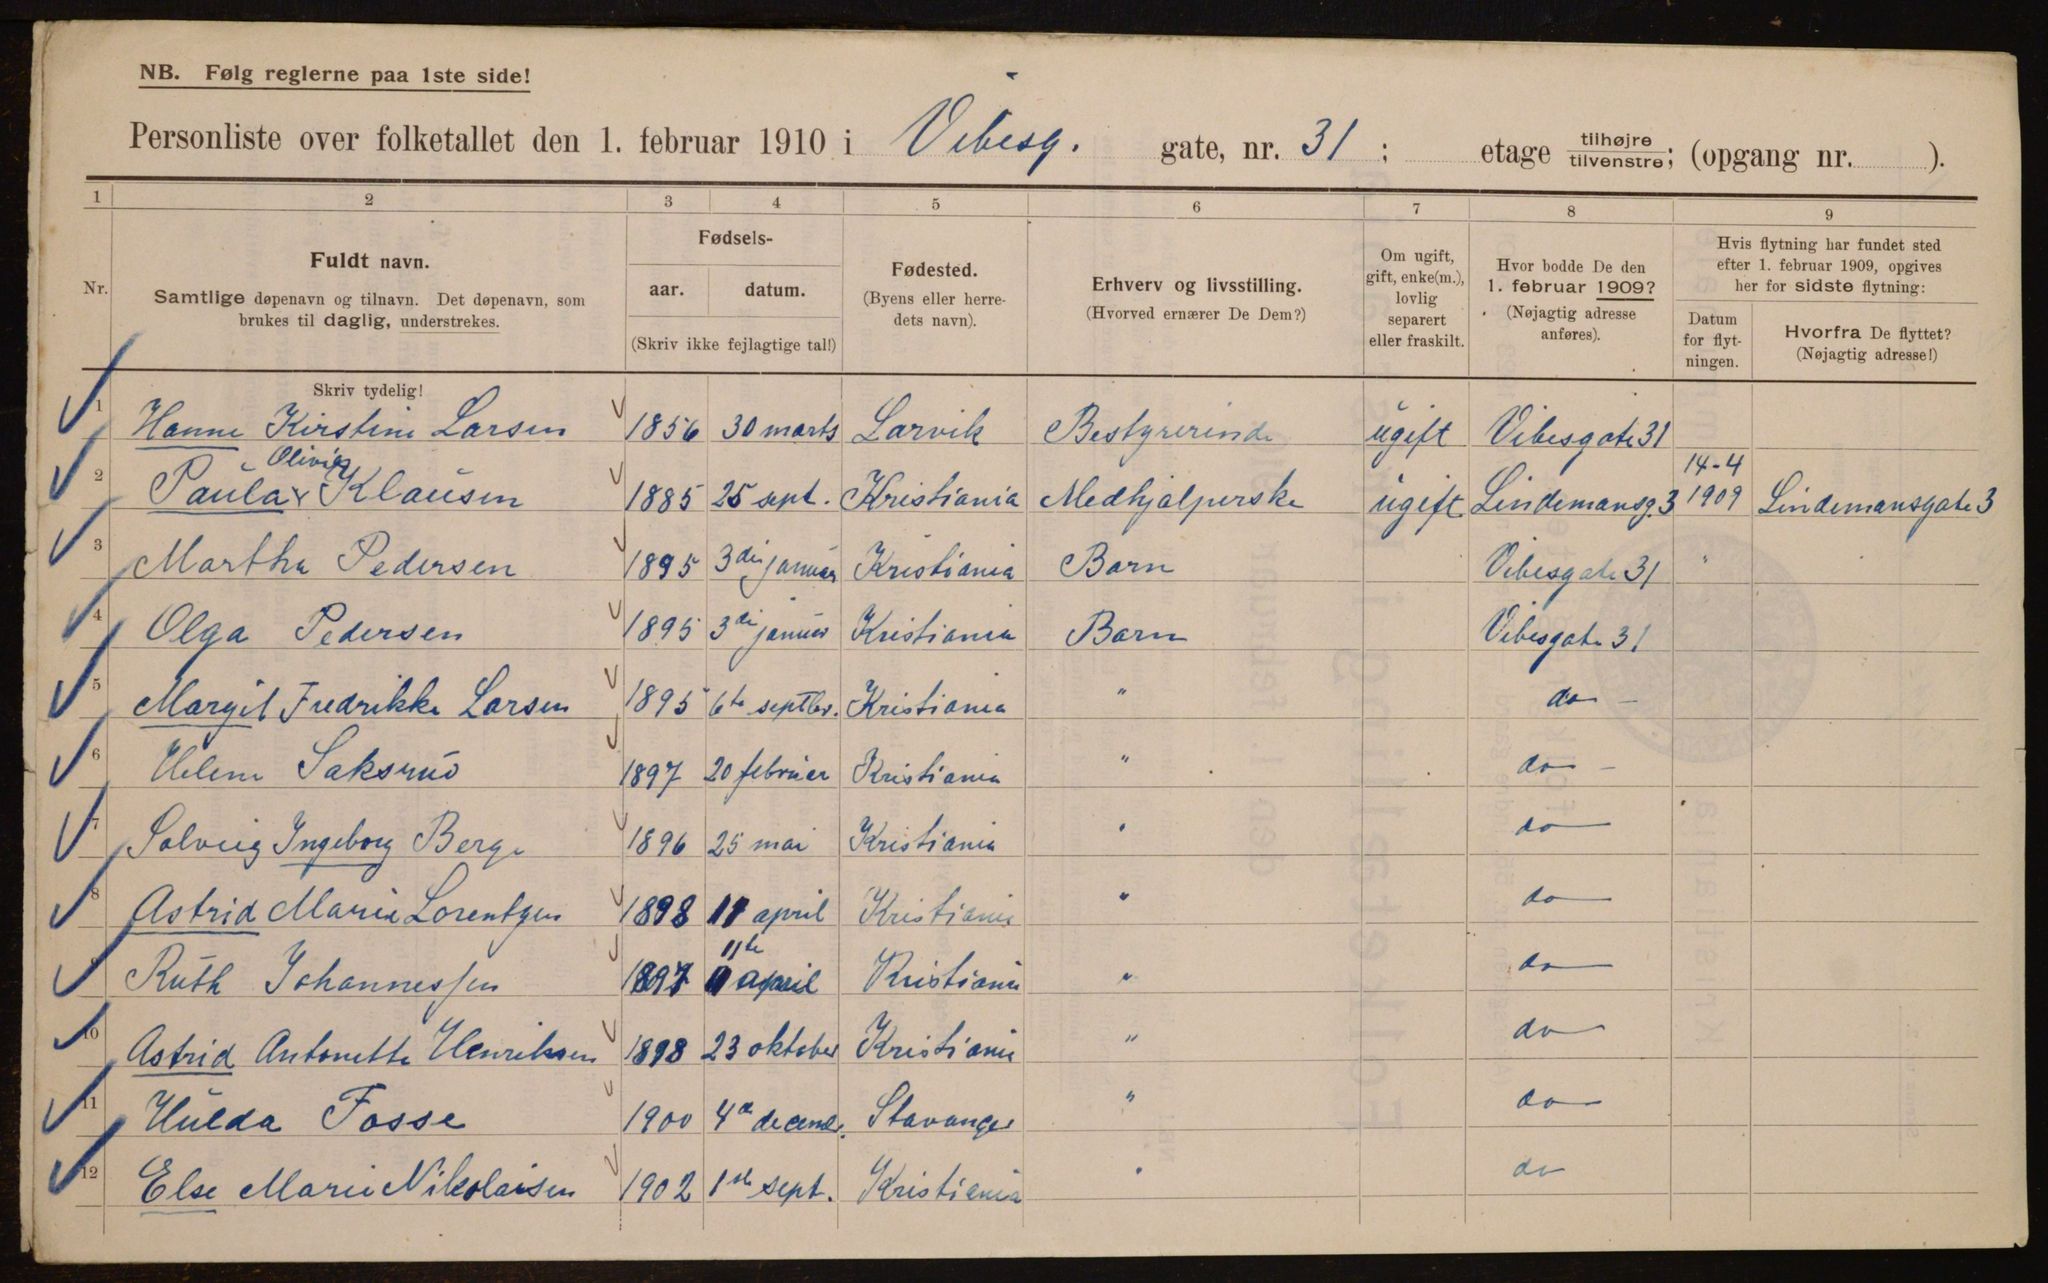 NB. Følg reglerne paa 1ste side!
Personliste over folketallet den 1. februar 1910 i Vibesg. gate, nr. 31; etage tilhøjre tilvenstre; (opgang nr. ).
1 2 3 4 5 6 7 8 9
Nr.
Fuldt navn.
Samtlige døpenavn og tilnavn. Det døpenavn, som
brukes til daglig, understrekes.
Skriv tydelig!
Fødsels-
aar. datum.
(Skriv ikke fejlagtige tal!)
Fødested.
(Byens eller herre-
dets navn).
Erhverv og livsstilling.
(Hvorved ernærer De Dem?)
Om ugift,
gift, enke(m.),
lovlig
separert
eller fraskilt.
Hvor bodde De den
1. februar 1909?
(Nøjagtig adresse
anføres).
Hvis flytning har fundet sted
efter 1. februar 1909, opgives
her for sidste flytning:
Datum
for flyt-
ningen.
Hvorfra De flyttet?
(Nøjagtig adresse!)
1 Hanne Kirstine Larsen 1856 30 marts Larvik Bestyrerinde ugift Vibesgate 31
2 Paula Olivia Klausen 1885 25 sept. Kristiania Medhjælperske ugift Lindemansg. 3 14-4 1909 Lindemansgate 3
3 Martha Pedersen 1895 3die januar Kristiania Barn Vibesgate 31 "
4 Olga Pedersen 1895 3di januar Kristiania Barn Vibesgate 31
5 Margit Fredrikke Larsen 1895 6te septbr. Kristiania " do -
6 Helene Saksrud 1897 20 februar Kristiania " do -
7 Solveig Ingeborg Berge 1896 25 mai Kristiania " do
8 Astrid Marie Lorentzen 1898 11 april Kristiania " do
9 Ruth Johannessen 1897 11te april Kristiania " do
10 Astrid Antonette Henriksen 1898 23 oktober Kristiania " do
11 Hulda Fosse 1900 4de decembr. Stavanger " do
12 Else Marie Nikolaisen 1902 1ste sept. Kristiania " do